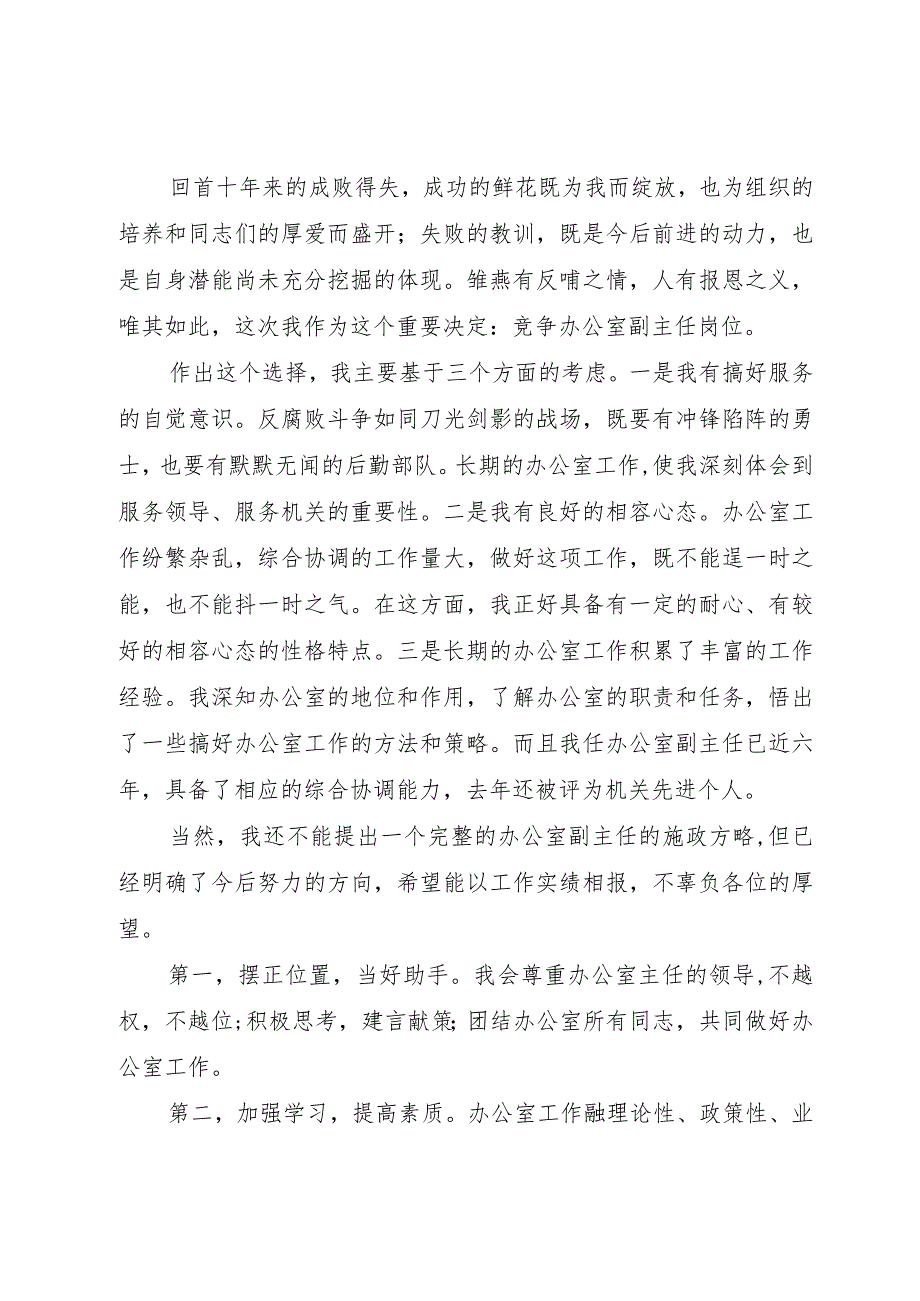 回首十年来的成败得失，成功的鲜花既为我而绽放，也为组织的
培养和同志们的厚爱而盛开；失败的教训，既是今后前进的动力，也
是自身潜能尚未充分挖掘的体现。雏燕有反哺之情，人有报恩之义，
唯其如此，这次我作为这个重要决定：竞争办公室副主任岗位。
作出这个选择，我主要基于三个方面的考虑。一是我有搞好服务
的自觉意识。反腐败斗争如同刀光剑影的战场，既要有冲锋陷阵的勇
士，也要有默默无闻的后勤部队。长期的办公室工作,使我深刻体会到
服务领导、服务机关的重要性。二是我有良好的相容心态。办公室工
作纷繁杂乱，综合协调的工作量大，做好这项工作，既不能逞一时之
能，也不能抖一时之气。在这方面，我正好具备有一定的耐心、有较
好的相容心态的性格特点。三是长期的办公室工作积累了丰富的工作
经验。我深知办公室的地位和作用，了解办公室的职责和任务，悟出
了一些搞好办公室工作的方法和策略。而且我任办公室副主任已近六
年，具备了相应的综合协调能力，去年还被评为机关先进个人。
当然，我还不能提出一个完整的办公室副主任的施政方略,但已
经明确了今后努力的方向，希望能以工作实绩相报，不辜负各位的厚
望。
第一，摆正位置，当好助手。我会尊重办公室主任的领导,不越
权，不越位;积极思考，建言献策；团结办公室所有同志，共同做好办
公室工作。
第二，加强学习，提高素质。办公室工作融理论性、政策性、业